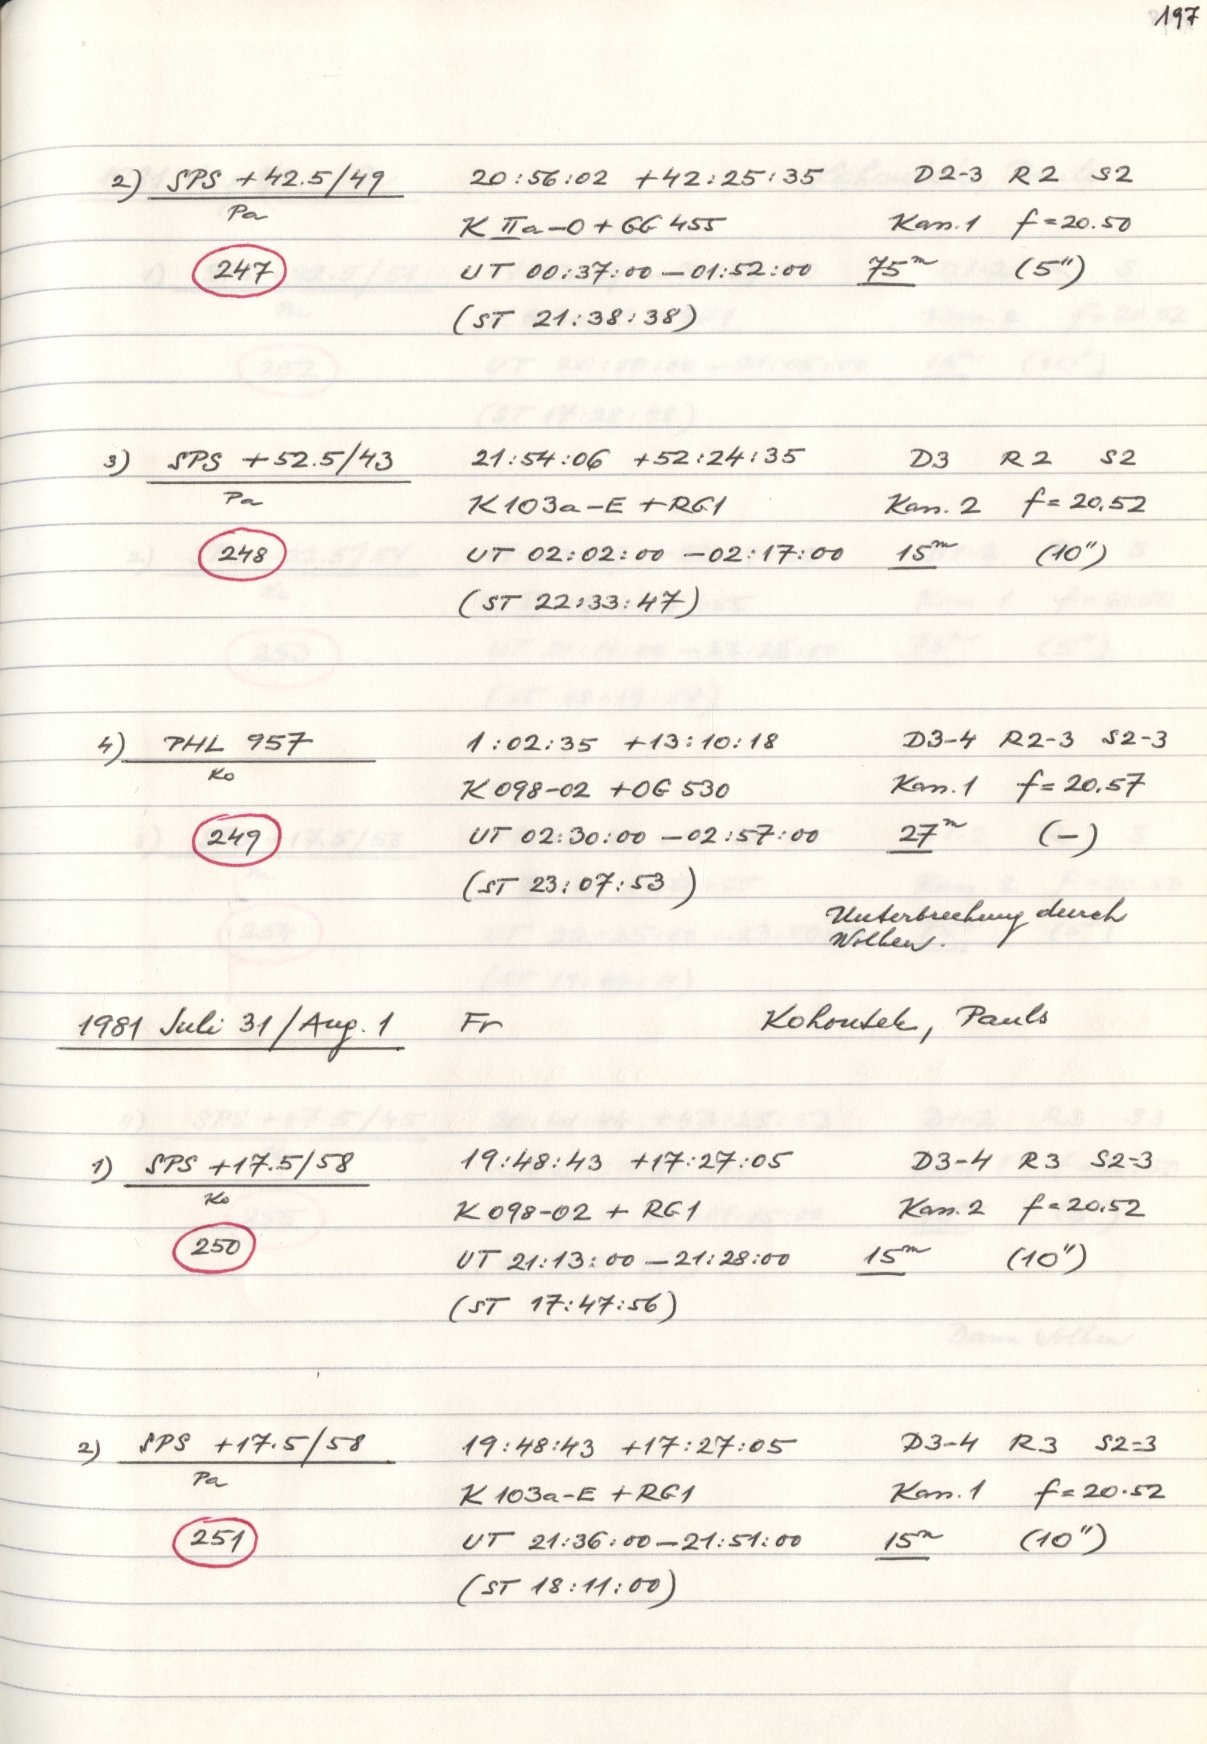 197
2) SPS +42.5/49 20:56:02 +42:25:35 D2-3 R2 S2
Pa K IIa-O + GG 455 Kass.1 f=20.50
247 UT 00:37:00 - 01:52:00 75m (5")
(ST 21:38:38)
3) SPS +52.5/43 21:54:06 +52:24:35 D3 R2 S2
Pa K 103a-E + RG1 Kass.2 f=20.52
248 UT 02:02:00 - 02:17:00 15m (10")
(ST 22:33:47)
4) PHL 957 1:02:35 +13:10:18 D3-4 R2-3 S2-3
Ko K 098-02 + OG 530 Kass.1 f=20.57
249 UT 02:30:00 - 02:57:00 27m (-)
(ST 23:07:53)
Unterbrechung durch
Wolken.
1981 Juli 31/Aug. 1 Fr Kohoutek, Pauls
1) SPS +17.5/58 19:48:43 +17:27:05 D3-4 R3 S2-3
Ko K 098-02 + RG1 Kass.2 f=20.52
250 UT 21:13:00 - 21:28:00 15m (10")
(ST 17:47:56)
2) SPS +17.5/58 19:48:43 +17:27:05 D3-4 R3 S2-3
Pa K 103a-E + RG1 Kass.1 f=20.52
251 UT 21:36:00 - 21:51:00 15m (10")
(ST 18:11:00)